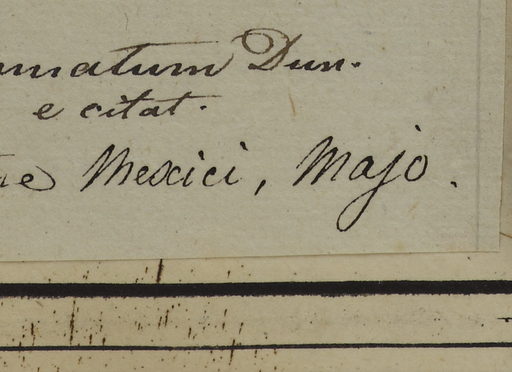 matum Dun.
e citat.
Mexici, Majo.